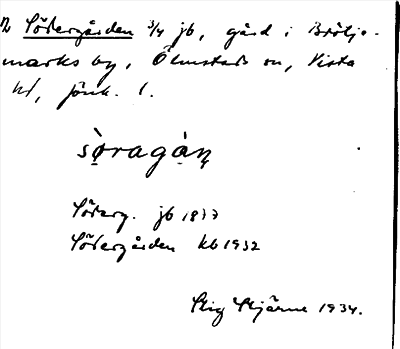 2 Södergården 3/4 jb, gård i Brötje-
marks by, Ölmstads sn, Vista
hd, Jönk. l.
sòragàṇ
Söderg. jb 1877
Södergården kb 1932
Stig Stjärne 1934.